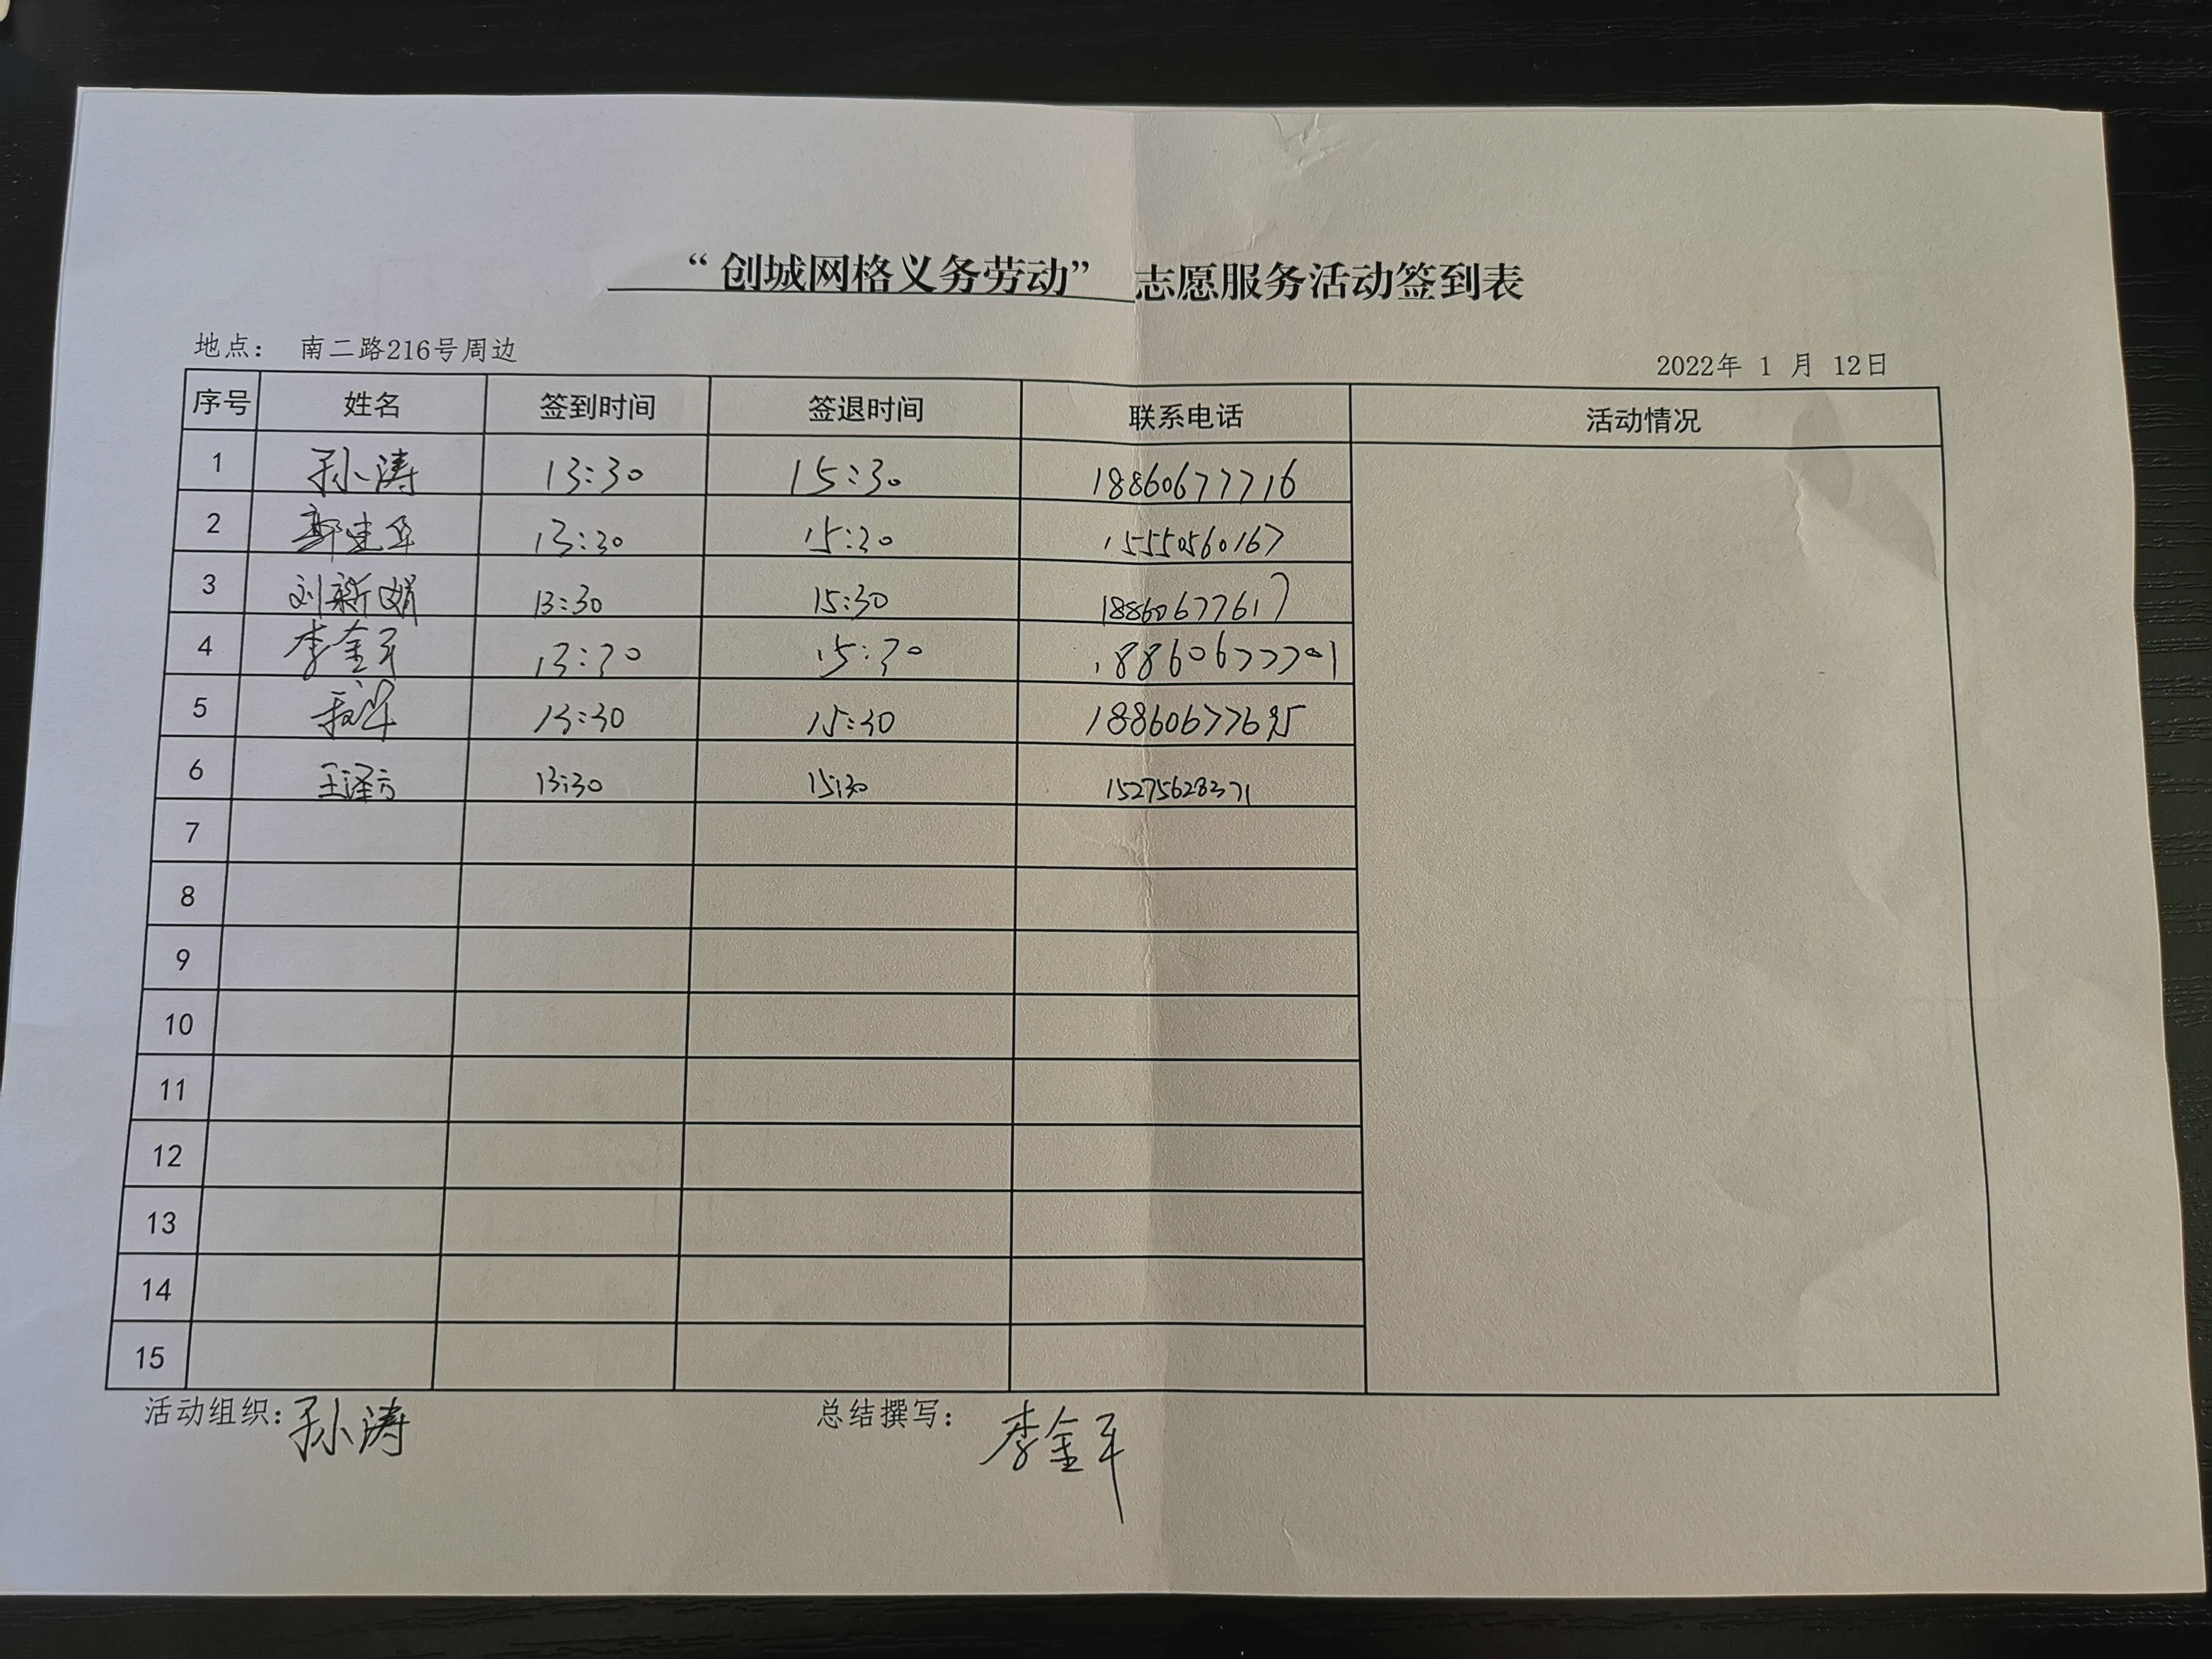 “创城网格义务劳动” 志愿服务活动签到表
地点： 南二路216号周边 2022年 1 月 12日
序号 姓名 签到时间 签退时间 联系电话 活动情况
1 孙涛 13:30 15:30 18860677716
2 郭建军 13:30 15:30 15550560167
3 刘新娟 13:30 15:30 18860677617
4 李金平 13:30 15:30 18860677701
5 13:30 15:30 18860677695
6 王泽方 13:30 15:30 15275628371
7
8
9
10
11
12
13
14
15
活动组织：孙涛 总结撰写： 李金平